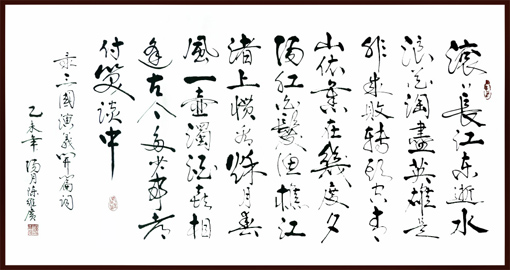 滚〻長江东逝水
浪花淘盡英雄是
非成败转头空青
山依旧在幾度夕
阳红白髮渔樵江
渚上惯看秋月春
風一壶濁酒喜相
逢古今多少事都
付笑谈中
录三國演義开篇词
乙未年月陈